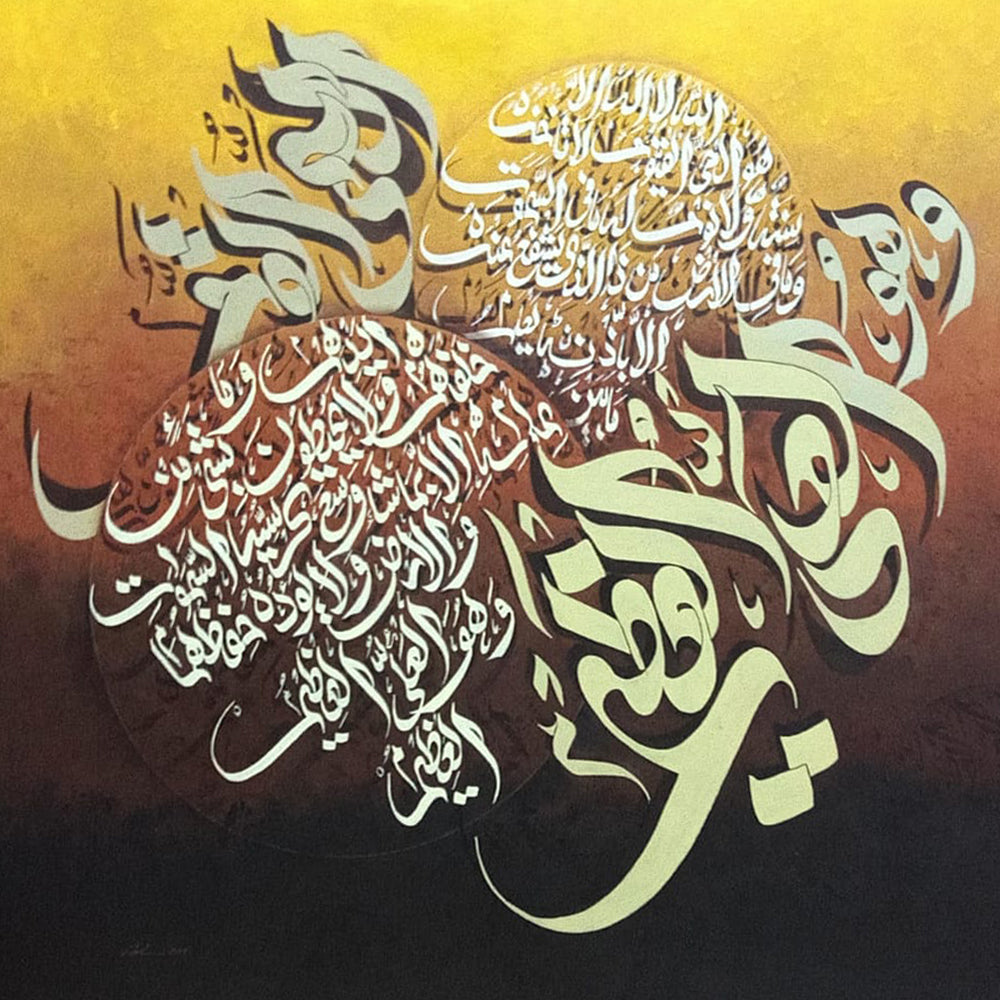 الله لا إله إلا
هو الحي القيوم لا تأخذه
سنة ولا نوم له ما في السموت
وما في الارض من ذا الذي يشفع عنده
الا بإذنه يعلم
ما بين
أيديهم وما
خلفهم ولا يحيطون بشي من
علمه الا بما شا وسع كرسيه السموات
والارض ولا يوده حفظهما
وهو العلي العظيم
العظيم
وهو
العلي
العظيم